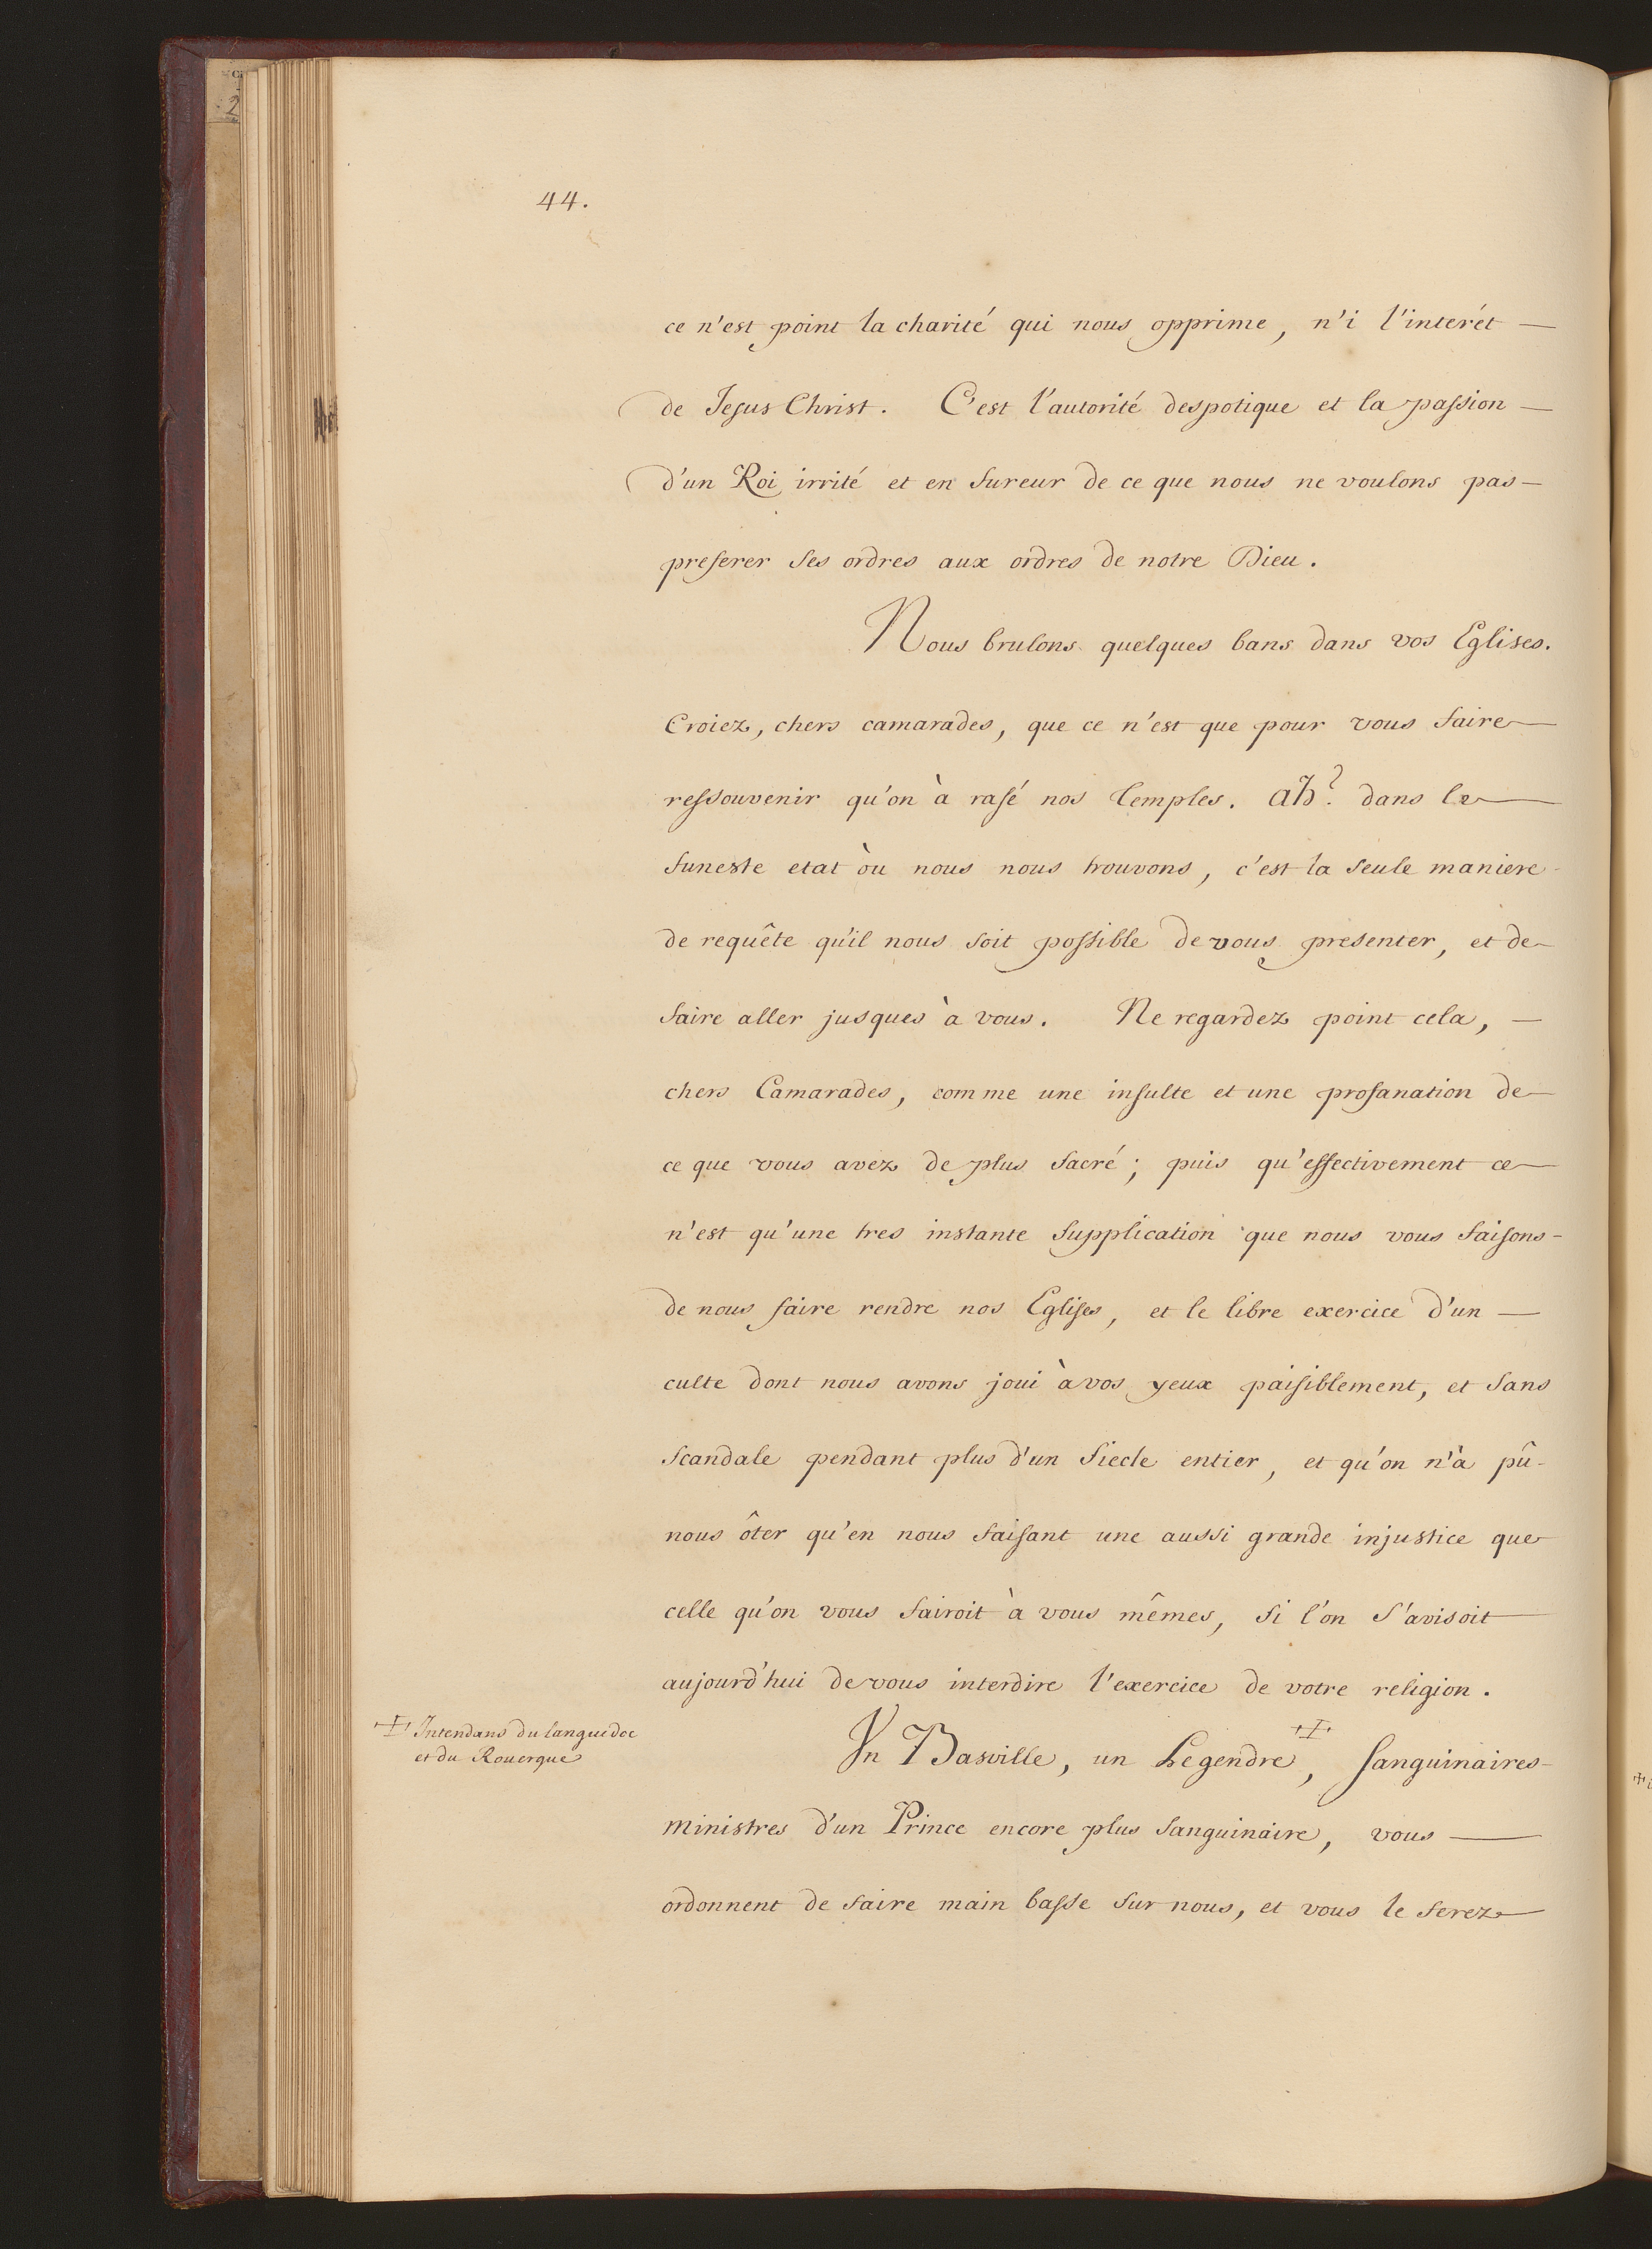 44.
ce n'est point la charité qui nous opprime, n'i l'interét —
de Jesus Christ. C'est l'autorité despotique et la passion —
d'un Roi irrité et en fureur de ce que nous ne voulons pas —
preferer ses ordres aux ordres de notre Dieu.
Nous brulons quelques bans dans vos Eglises.
Croiez, chers camarades, que ce n'est que pour vous faire
ressouvenir qu'on à rasé nos temples. ah? dans le
funeste etat òu nous nous trouvons, c'est la seule maniere
de requête qu'il nous soit possible de vous presenter, et de
faire aller jusques à vous. Ne regardez point cela, —
chers Camarades, comme une insulte et une profanation de
ce que vous avez de plus sacré; puis qu'effectivement ce
n'est qu'une tres instante supplication que nous vous faisons -
de nous faire rendre nos Eglises, et le libre exercice d'un —
culte dont nous avons joui à vos yeux paisiblement, et sans
scandale pendant plus d'un siecle entier, et qu'on n'à pû -
nous ôter qu'en nous faisant une aussi grande injustice que
celle qu'on vous fairoit à vous mêmes, si l'on s'avisoit
aujourd'hui de vous interdire l'exercice de votre religion.
‡ Intendans du languedoc
et du Rouergue
Un Basville, un Legendre ‡, sanguinaires -
ministres d'un Prince encore plus sanguinaire, vous —
ordonnent de faire main basse sur nous, et vous le ferez